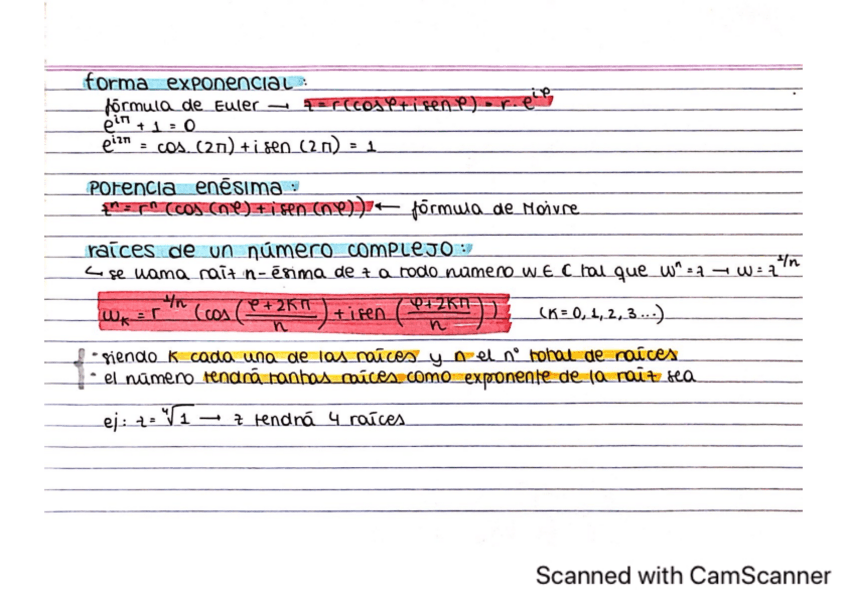 forma exponencial:
fórmula de Euler → z=r(cosφ+i senφ) = r·e^iφ
e^iπ + 1 = 0
e^i2π = cos (2π) + i sen (2π) = 1
potencia enésima:
z^n = r^n (cos (nφ) + i sen (nφ)) ← fórmula de Moivre
raíces de un número complejo:
↳ se llama raíz n-ésima de z a todo número w ∈ C tal que w^n = z → w = z^1/n
w_K = r^1/n (cos (φ+2Kπ/n) + i sen (φ+2Kπ/n)) (K=0, 1, 2, 3...)
· siendo K cada una de las raíces y n el nº total de raíces
· el número tendrá tantas raíces como exponente de la raíz sea
ej: z = ⁴√1 → z tendrá 4 raíces
Scanned with CamScanner